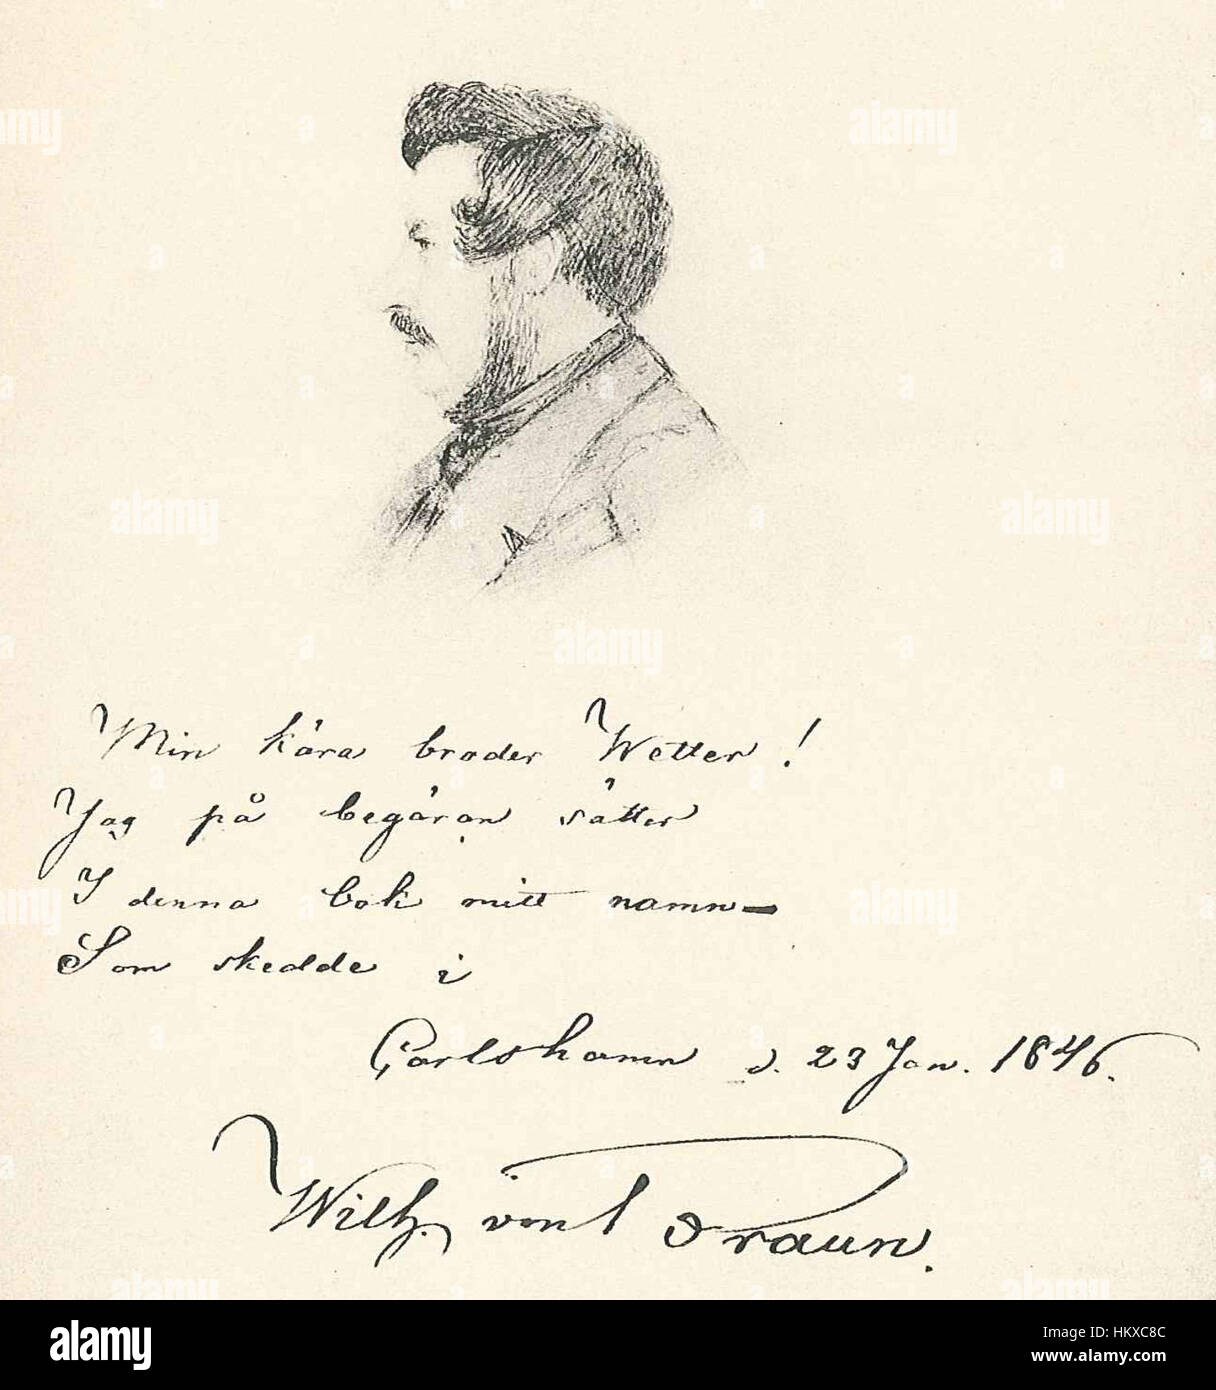 Min kära broder Wetter!
Jag på begäran sätter
I denna bok mitt namn—
Som skedde i
Carlshamn d. 23 Jan. 1846.
Wilh. von Braun.
alamy
Image ID: HKXC8C
www.alamy.com